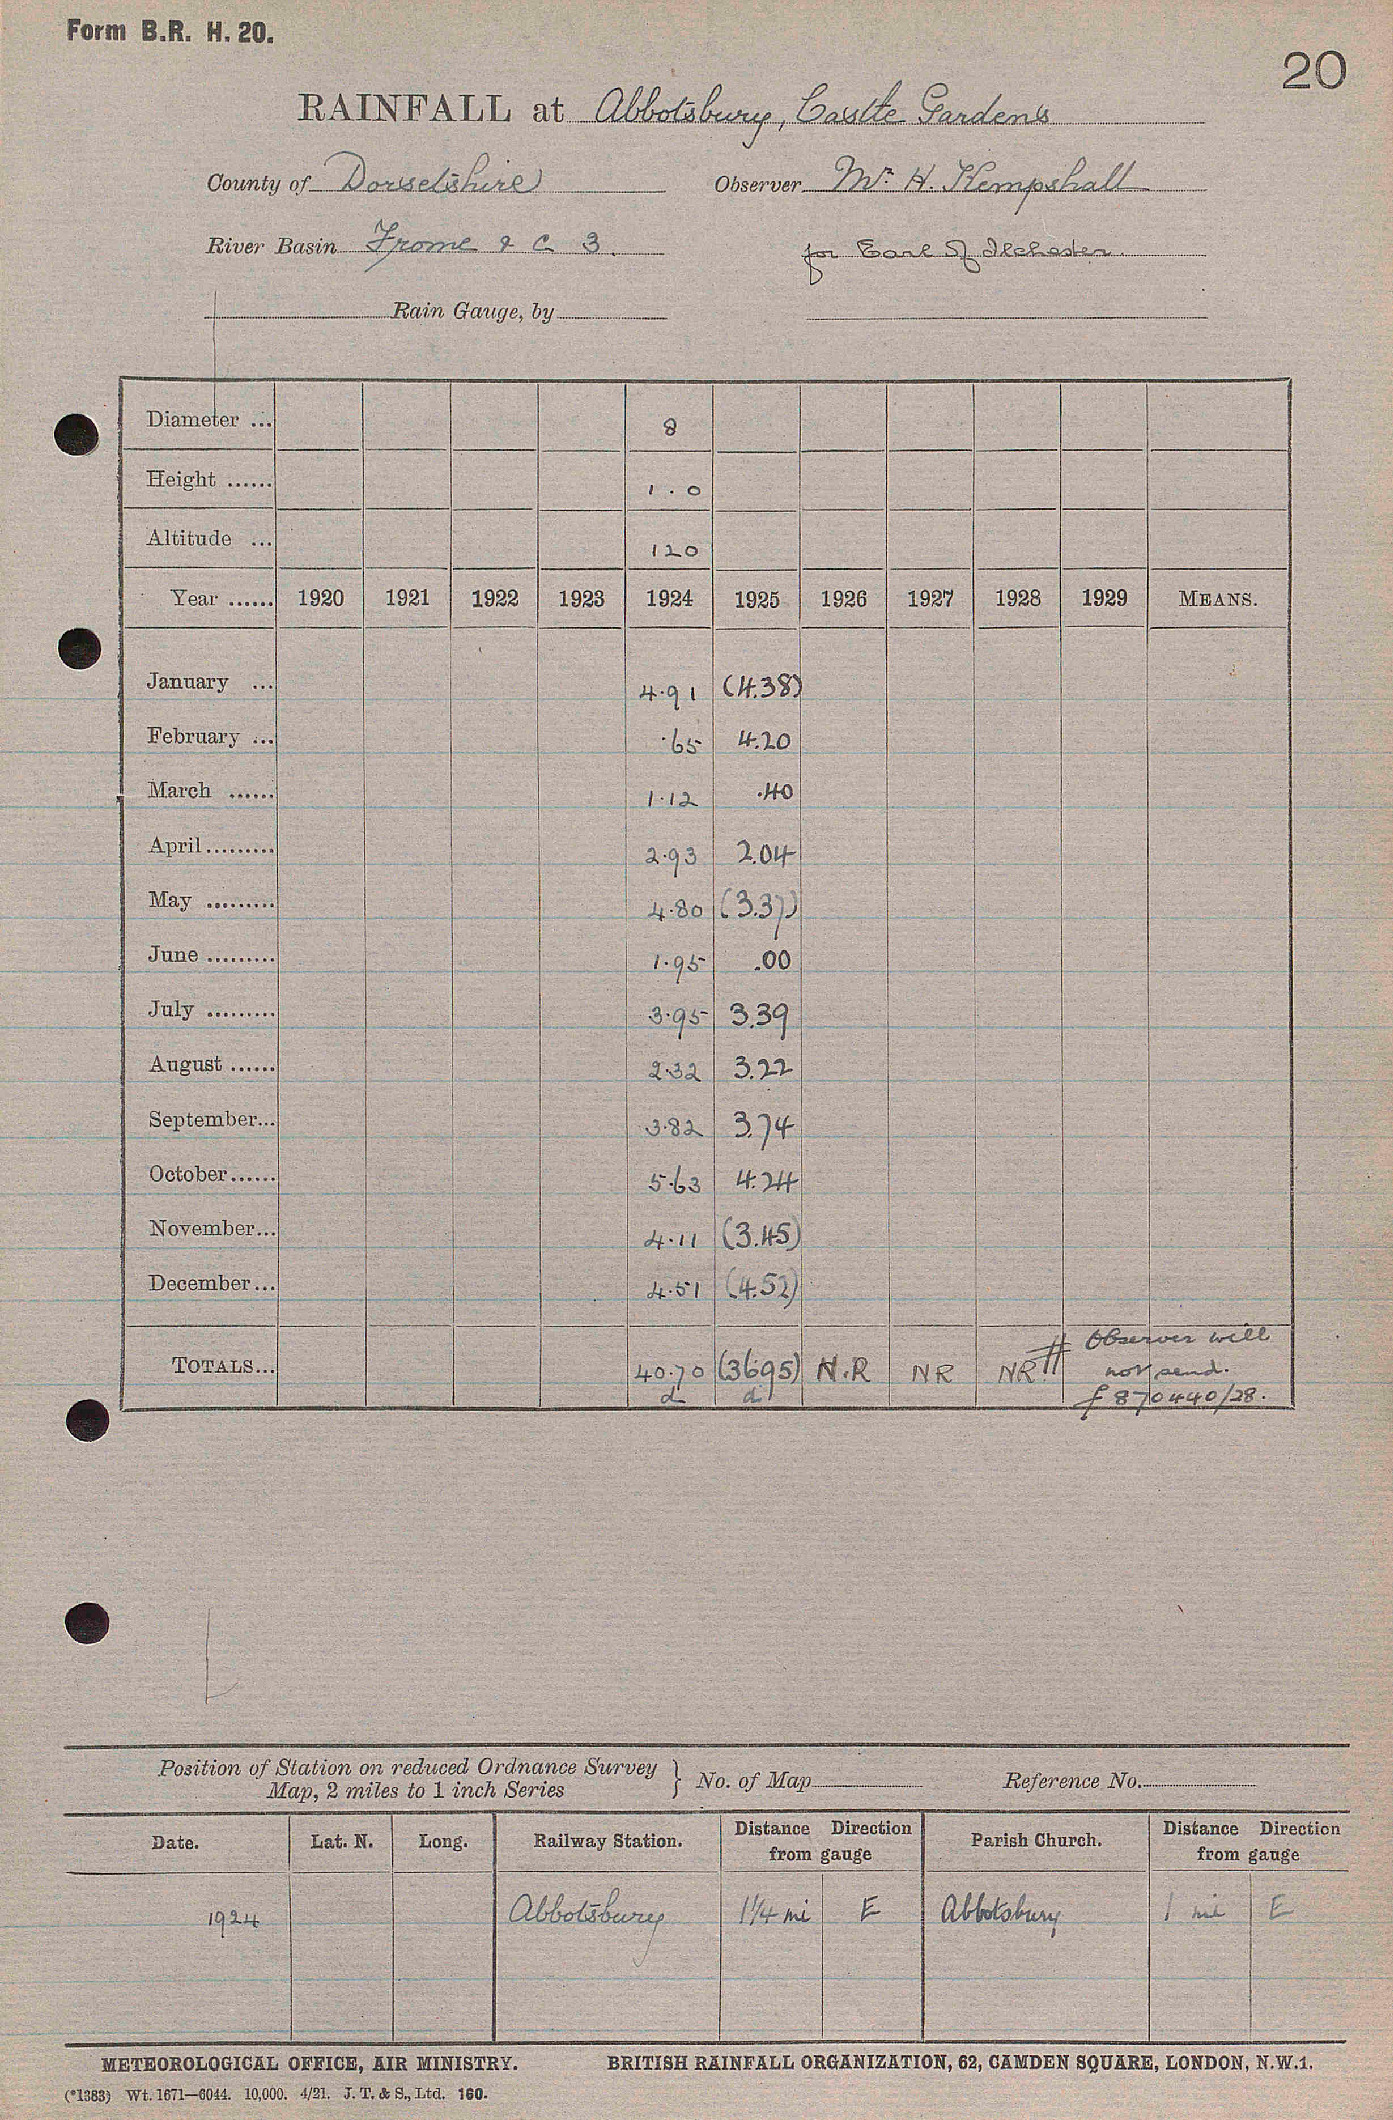 Form B.R. H. 20.
20
RAINFALL at Abbotsbury, Castle Gardens
County of Dorsetshire Observer Mr. H. Kempshall
River Basin Frome & C 3. for Earl of Ilchester.
Rain Gauge, by
Diameter ... 8
Height ...... 1.0
Altitude ... 120
Year ...... 1920 1921 1922 1923 1924 1925 1926 1927 1928 1929 MEANS.
January ... 4.91 (4.38)
February ... .65 4.20
March ...... 1.12 .40
April ......... 2.93 2.04
May ......... 4.80 (3.37)
June ......... 1.95 .00
July ......... 3.95 3.39
August ...... 2.32 3.22
September... 3.82 3.74
October...... 5.63 4.24
November... 4.11 (3.45)
December... 4.51 (4.52)
TOTALS... 40.70 (36.95) N.R NR NR # Observer will
not send.
d d f 870440/28.
Position of Station on reduced Ordnance Survey
Map, 2 miles to 1 inch Series } No. of Map Reference No.
Date. Lat. N. Long. Railway Station. Distance Direction from gauge Parish Church. Distance Direction from gauge
1924 Abbotsbury 1¼ mi E Abbotsbury 1 mi E
METEOROLOGICAL OFFICE, AIR MINISTRY. BRITISH RAINFALL ORGANIZATION, 62, CAMDEN SQUARE, LONDON, N.W.1.
(*1383) Wt. 1671—6044. 10,000. 4/21. J. T. & S., Ltd. 160.